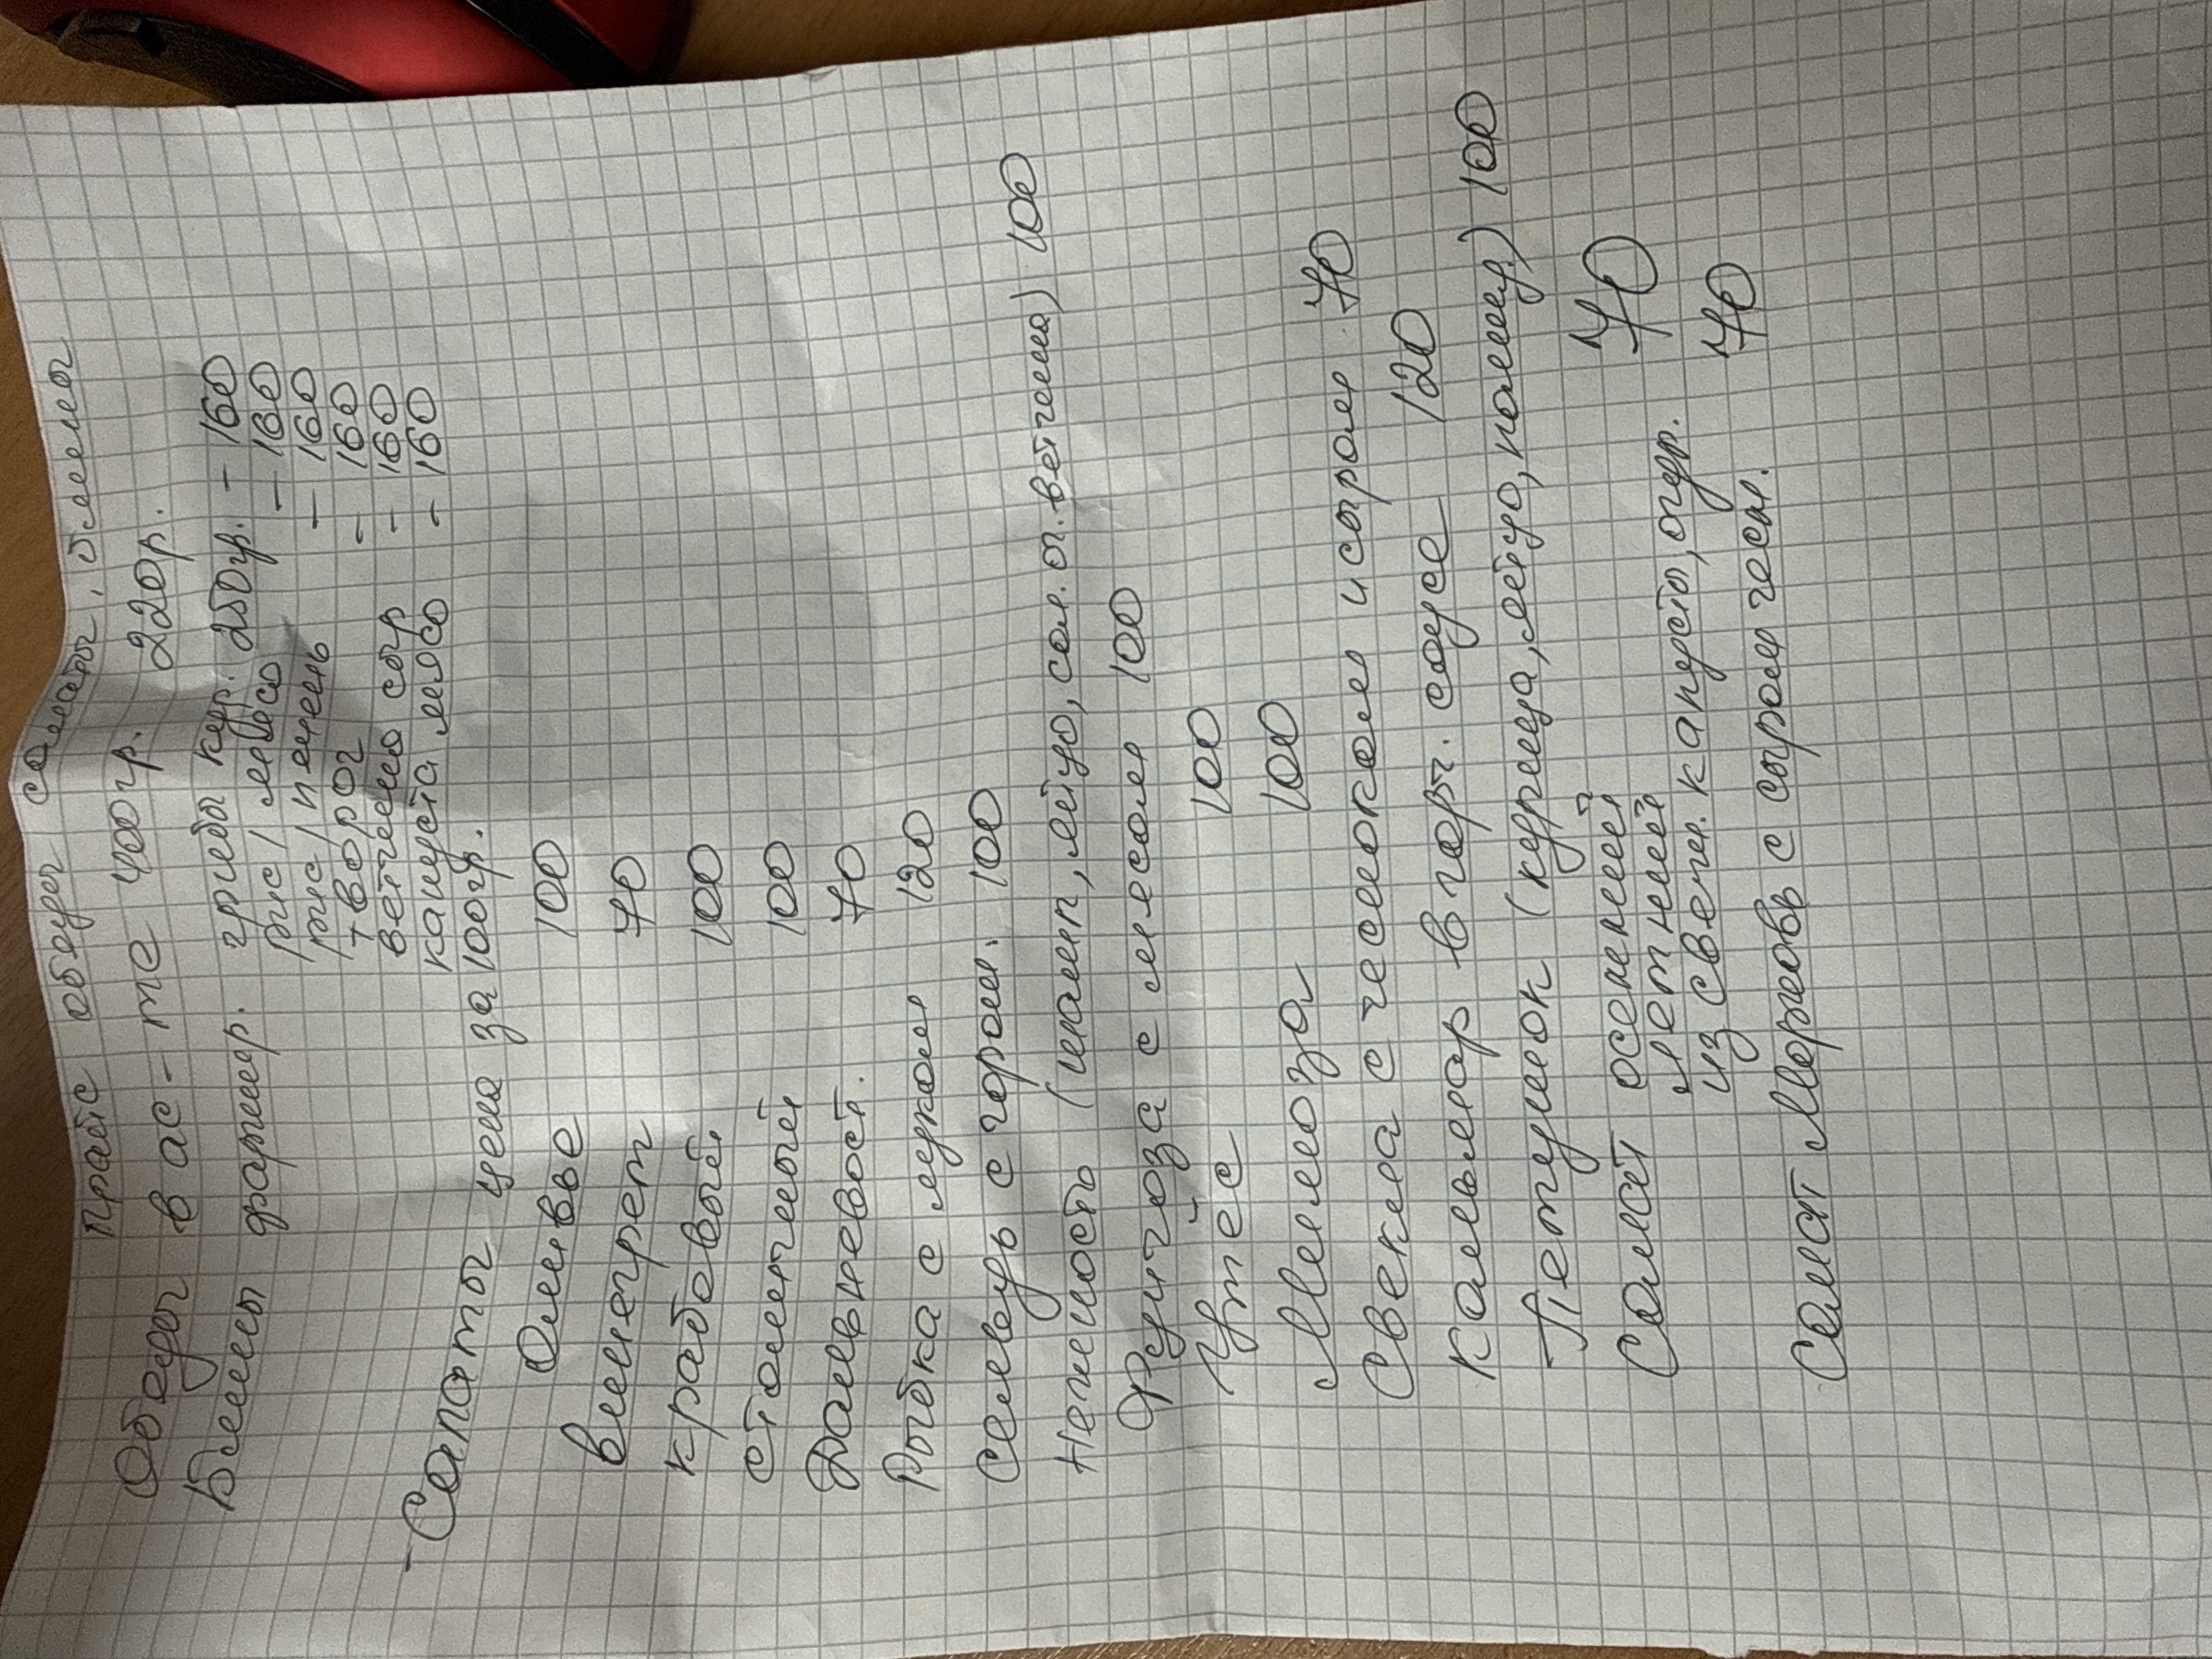 прайс обеды салаты, блины
Обеды в ас-те 400 гр. 220р.
Блины фаршир. грибы кур. 250гр. - 160
рис/мясо - 160
рис/печень - 160
творог - 160
ветчина сыр - 160
капуста мясо - 160
- Салаты цена за 100гр.
Оливье 100
винегрет 70
крабовый 100
столичный 100
Дальневост. 70
Рыбка с луком 120
Сельдь с горош. 100
Нежность (шамп, яйцо, сол. ог. ветчина) 100
Фунчоза с мясом 100
Утёс 100
Мимоза 100
Свекла с чесноком и сыром 70
Кальмар в горч. соусе 120
Петушок (курица, яйцо, помид.) 100
Салат осенний
летний 70
из свеж. капусты, огур.
Салат Морковь с сыром чесн. 70